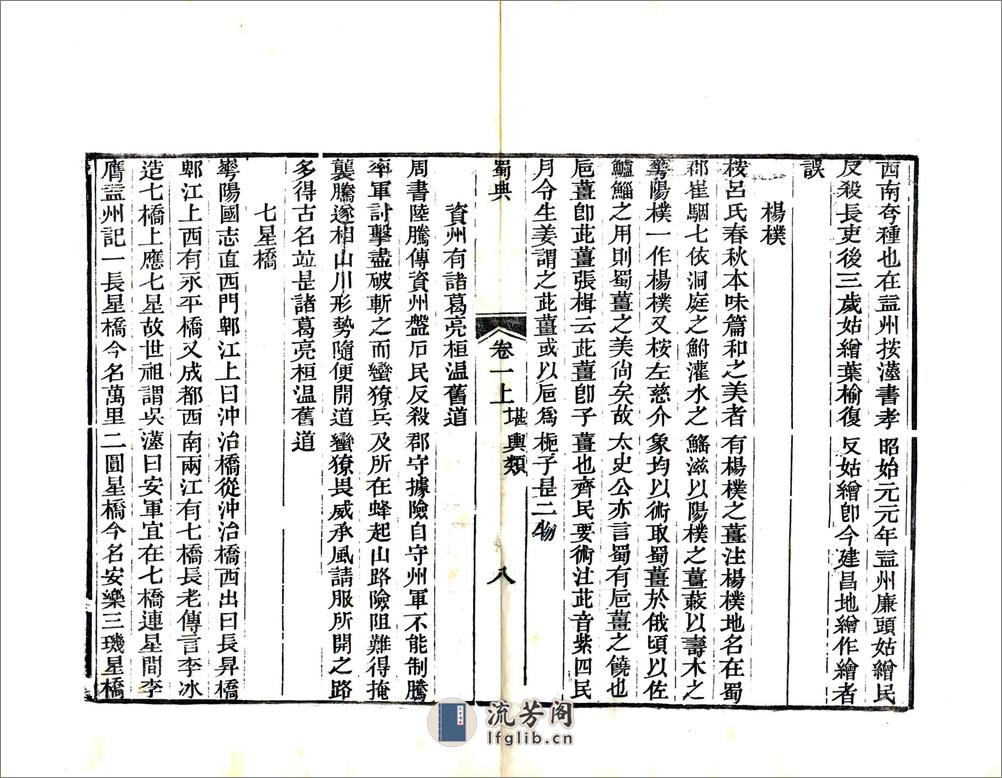 西南夸種也在益州按漢書孝昭始元元年益州廉頭姑繒民
反殺長吏後三歲姑繒葉榆復反姑繒卽今建昌地繒作繒者
誤
楊樸
桉呂氏春秋本味篇和之美者有楊樸之薑注楊樸地名在蜀
郡崔駰七依洞庭之鮒灌水之鰩滋以陽樸之薑蔌以壽木之
華陽樸一作楊樸又桉左慈介象均以術取蜀薑於俄頃以佐
鱸鯔之用則蜀薑之美尙矣故太史公亦言蜀有巵薑之饒也
巵薑卽茈薑張楫云茈薑卽子薑也齊民要術注茈音紫四民
月令生姜謂之茈薑或以巵爲梔子是二物
蜀典
卷一上
堪輿類
八
資州有諸葛亮桓温舊道
周書陸騰傳資州盤石民反殺郡守據險自守州軍不能制騰
率軍討擊盡破斬之而蠻獠兵及所在蜂起山路險阻難得掩
襲騰遂相山川形勢隨便開道蠻獠畏威承風請服所開之路
多得古名竝是諸葛亮桓温舊道
七星橋
華陽國志直西門郫江上曰沖治橋從沖治橋西出曰長昇橋
郫江上西有永平橋又成都西南兩江有七橋長老傳言李冰
造七橋上應七星故世祖謂吳漢曰安軍宜在七橋連星間李
膺益州記一長星橋今名萬里二圓星橋今名安樂三璣星橋
流芳阁
lfglib.cn